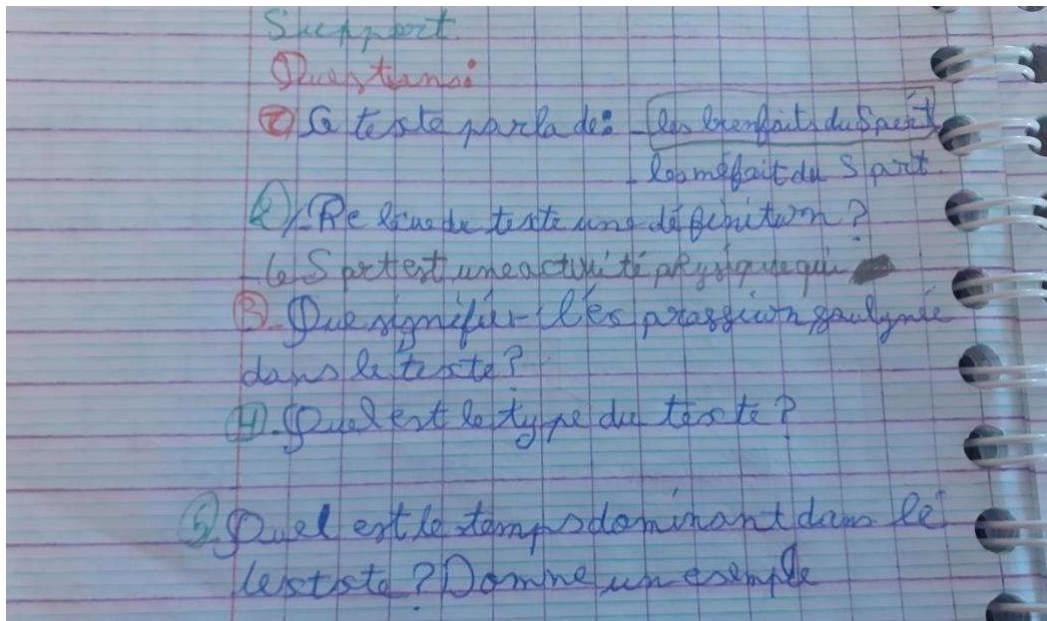 Support
Questions:
① Le texte parla de: - les bienfaits du Sport
- les méfait du Sport
2) - Relève du texte une définition?
- le Sport est une activité physique qui
3. Que signifier l'éxprassion soulynié
dans le texte?
4. Quel est le type du texte?
5. Quel est le temps dominant dans le
textste? Donne un exemple